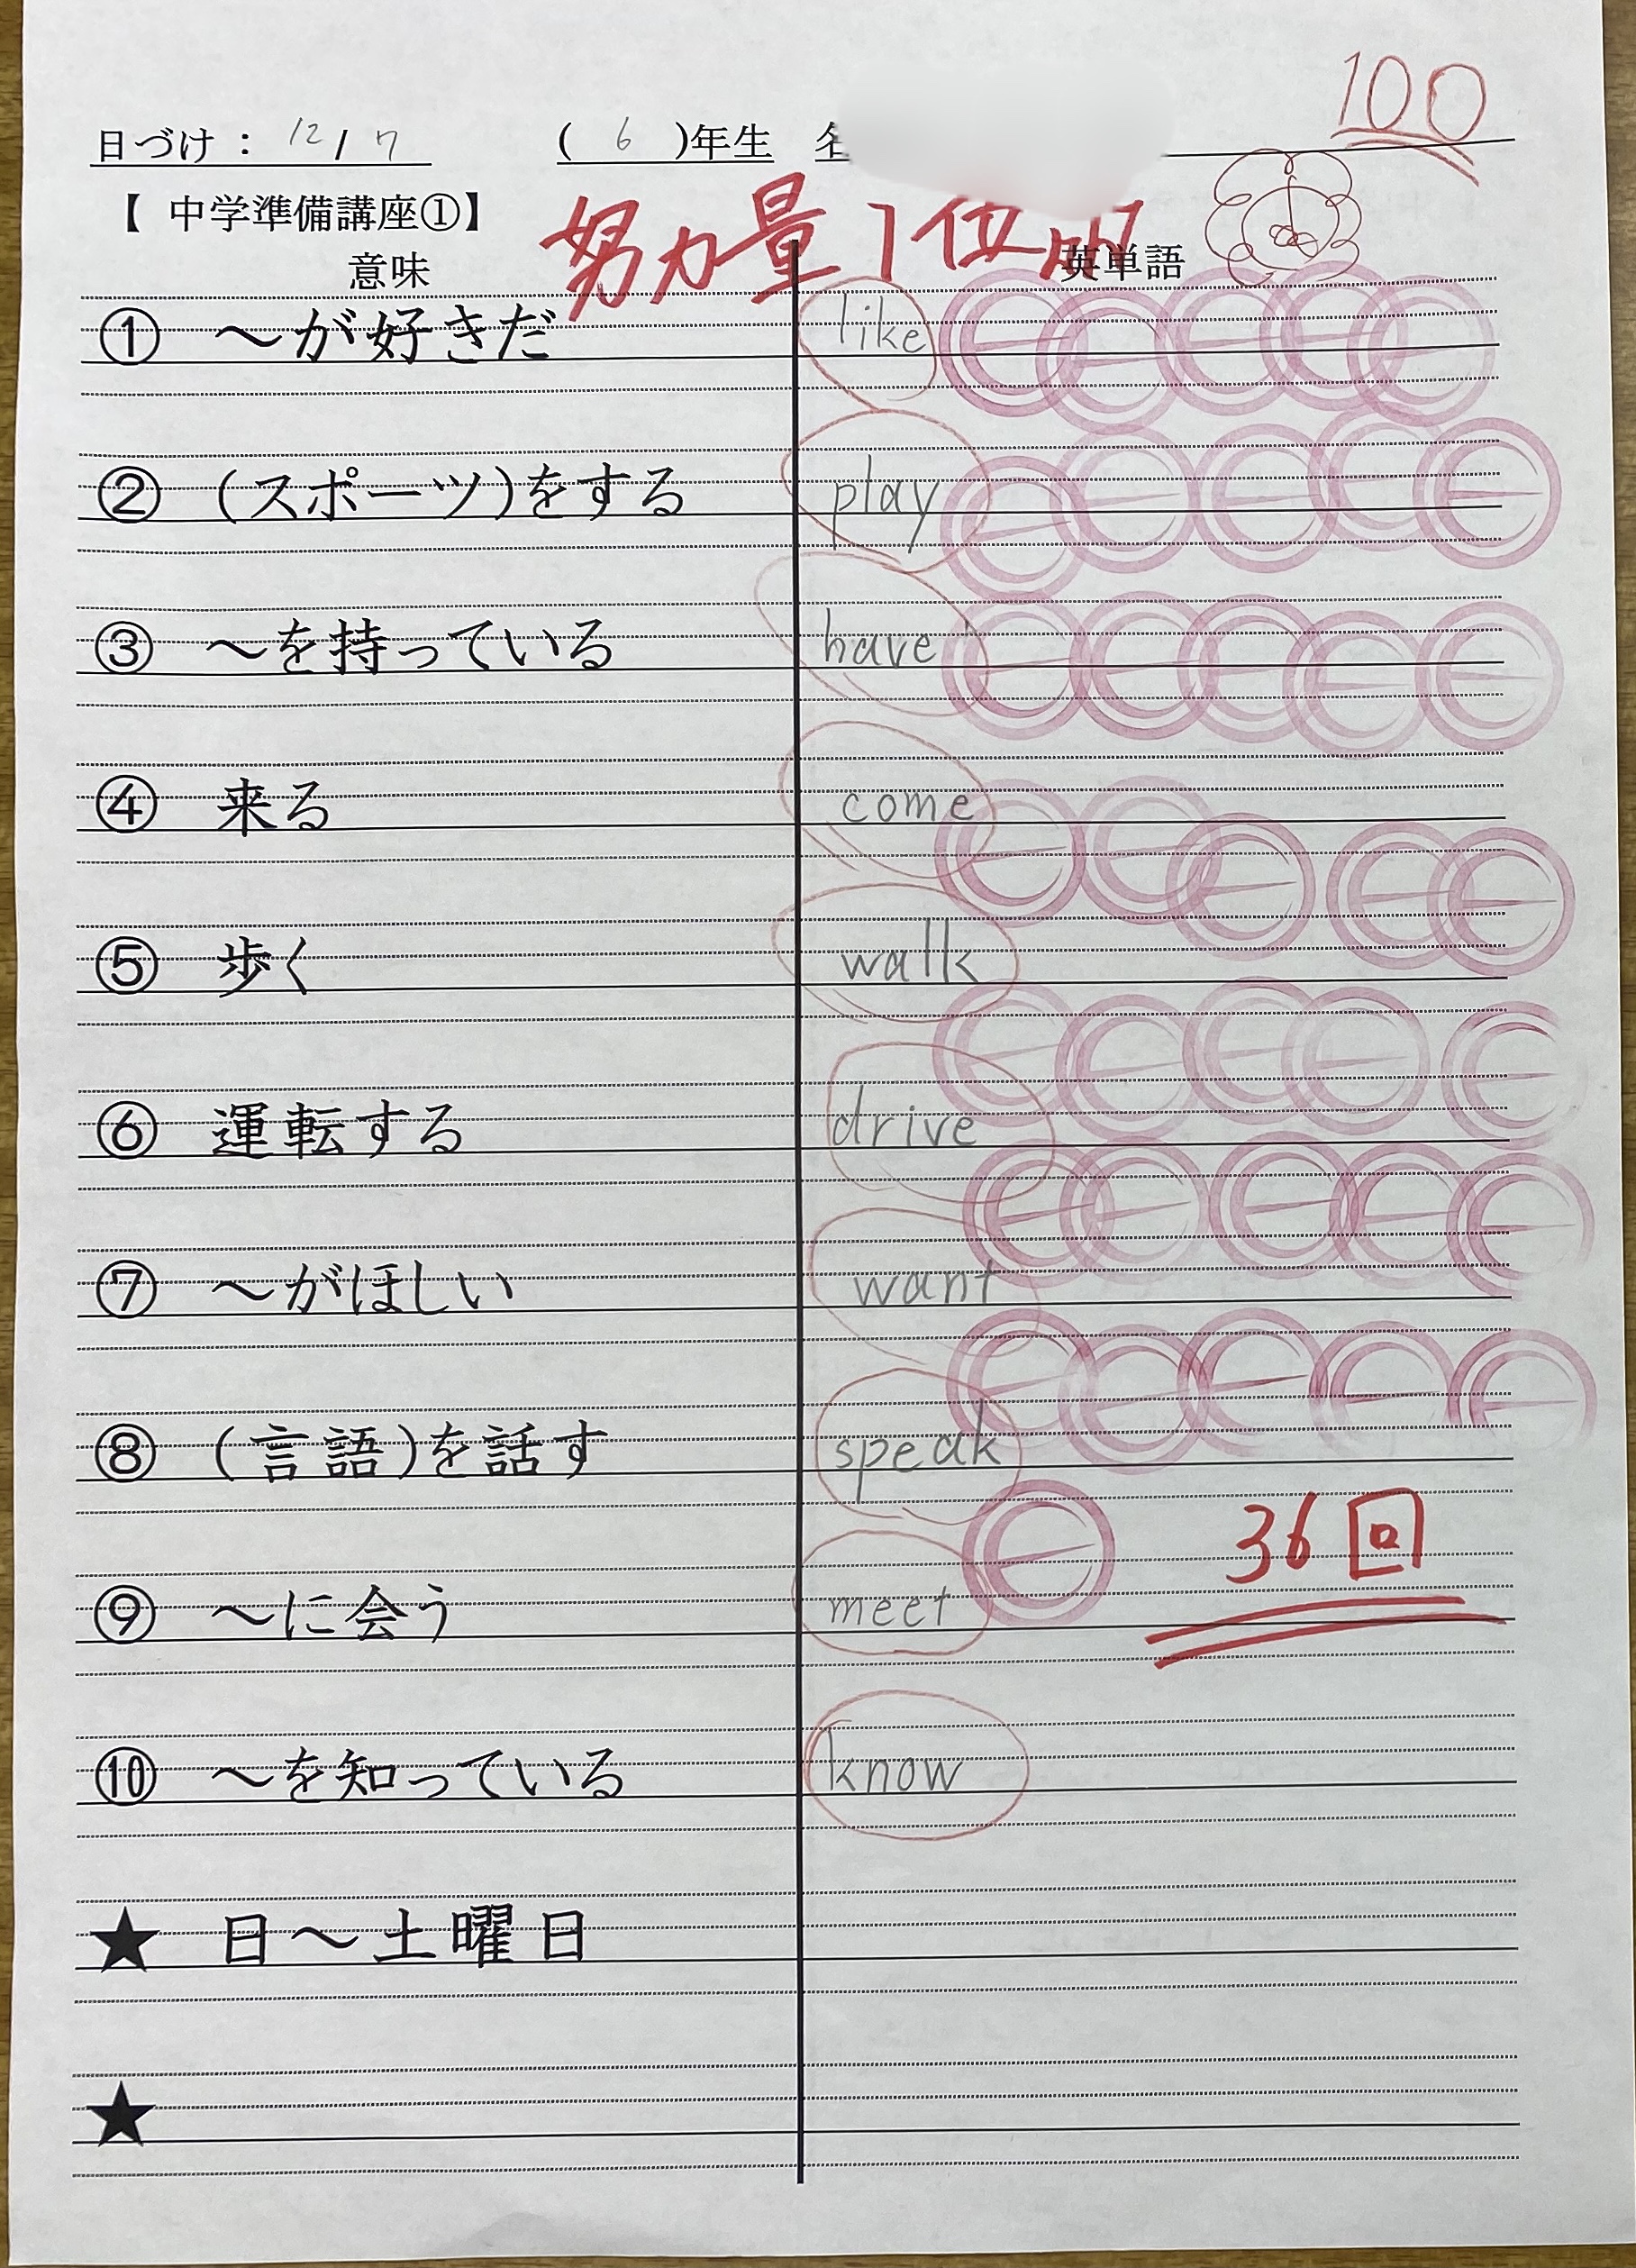 100
日づけ： 12/7 (6)年生
【 中学準備講座①】
努力量1位!!!
意味 英単語
① 〜が好きだ like
② (スポーツ)をする play
③ 〜を持っている have
④ 来る come
⑤ 歩く walk
⑥ 運転する drive
⑦ 〜がほしい want
⑧ (言語)を話す speak
36回
⑨ 〜に会う meet
⑩ 〜を知っている know
★ 日〜土曜日
★